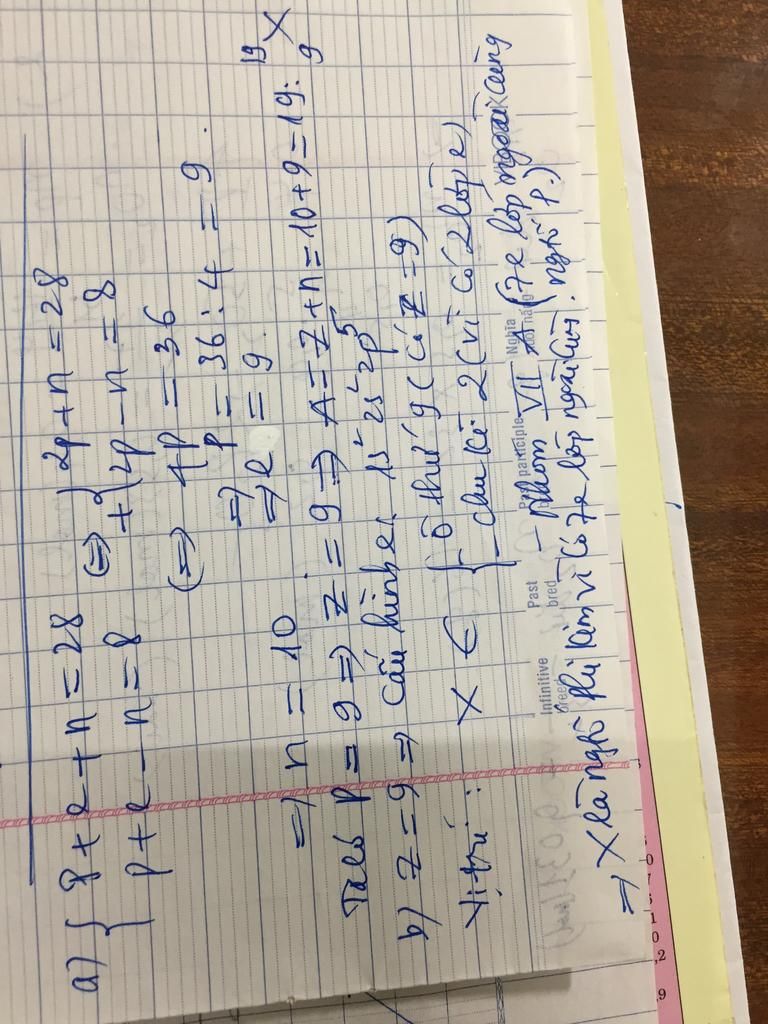 a) { p + e + n = 28 <=> { 2p + n = 28
{ p + e - n = 8 + { 2p - n = 8
<=> 4p = 36
=> p = 36 : 4 = 9.
=> e = 9
=> n = 10
Ta có p = 9 => Z = 9 => A = Z + n = 10 + 9 = 19 : ¹⁹₉X
b) Z = 9 => Cấu hình e 1s² 2s² 2p⁵
Vị trí : X ∈ { ô thứ 9 (có Z = 9)
- chu kì 2 (vì có 2 lớp e)
- Nhóm VII A (7e lớp ngoài cùng
=> X là ngtố phi kim vì có 7e lớp ngoài cùng. ngtố p.)
Infinitive
breed
Past
bred
Past participle
Nghĩa